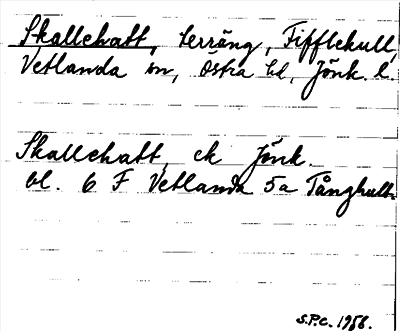 Skallehatt, terräng, Fifflekull,
Vetlanda sn, Östra hd, Jönk. l.
Skallehatt, ek Jönk.
bl. 6 F Vetlanda 5a Tånghult.
S.P.C. 1956.